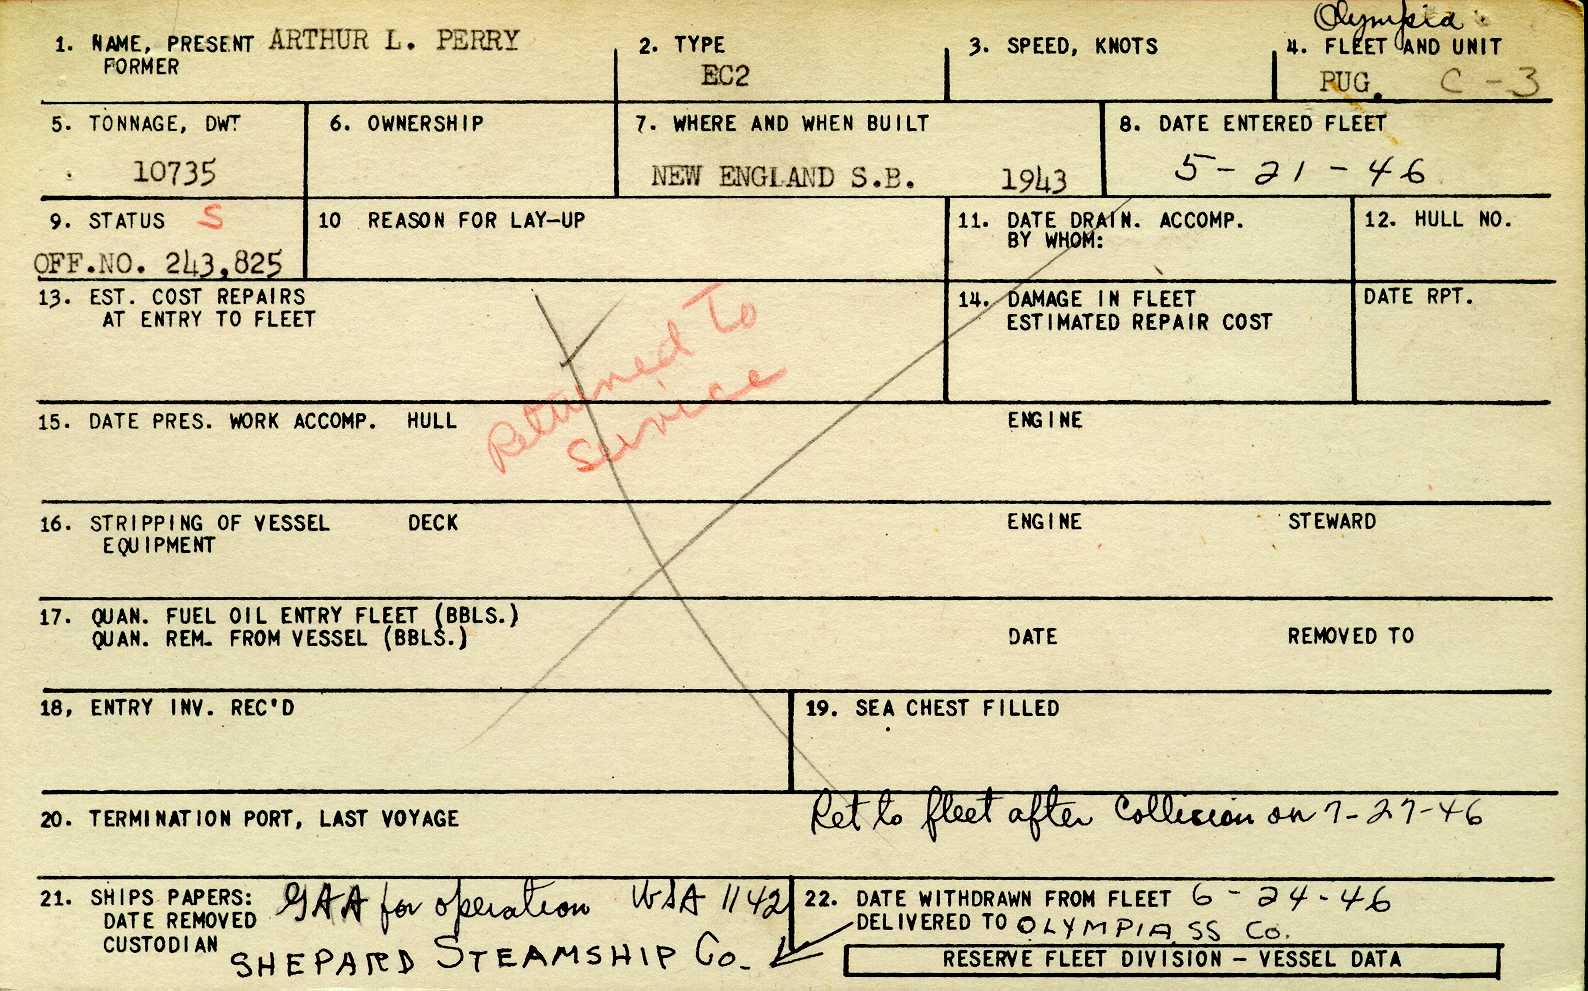 Olympia
1. NAME, PRESENT ARTHUR L. PERRY
FORMER
2. TYPE
EC2
3. SPEED, KNOTS
4. FLEET AND UNIT
PUG. C-3
5. TONNAGE, DWT
10735
6. OWNERSHIP
7. WHERE AND WHEN BUILT
NEW ENGLAND S.B. 1943
8. DATE ENTERED FLEET
5-21-46
9. STATUS S
OFF.NO. 243,825
10 REASON FOR LAY-UP
11. DATE DRAIN. ACCOMP.
BY WHOM:
12. HULL NO.
13. EST. COST REPAIRS
AT ENTRY TO FLEET
14. DAMAGE IN FLEET
ESTIMATED REPAIR COST
DATE RPT.
Returned To
Service
15. DATE PRES. WORK ACCOMP. HULL ENGINE
16. STRIPPING OF VESSEL DECK ENGINE STEWARD
EQUIPMENT
17. QUAN. FUEL OIL ENTRY FLEET (BBLS.)
QUAN. REM. FROM VESSEL (BBLS.) DATE REMOVED TO
18, ENTRY INV. REC'D
19. SEA CHEST FILLED
20. TERMINATION PORT, LAST VOYAGE
Ret to fleet after Collision on 7-27-46
21. SHIPS PAPERS: GAA for operation WSA 1142
DATE REMOVED
CUSTODIAN SHEPARD STEAMSHIP Co.
22. DATE WITHDRAWN FROM FLEET 6-24-46
DELIVERED TO OLYMPIA SS Co.
RESERVE FLEET DIVISION - VESSEL DATA